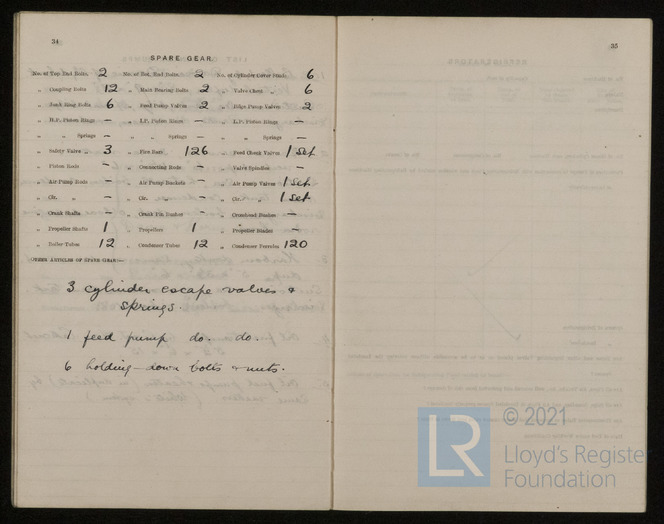 34
SPARE GEAR.
No. of Top End Bolts. 2 No. of Bot. End Bolts. 2 No. of Cylinder Cover Studs. 6
„ Coupling Bolts 12 „ Main Bearing Bolts 2 „ Valve Chest 6
„ Junk Ring Bolts 6 „ Feed Pump Valves 2 „ Bilge Pump Valves 2
„ H.P. Piston Rings – „ I.P. Piston Rings – „ L.P. Piston Rings –
„ „ Springs – „ „ Springs – „ „ Springs –
„ Safety Valve „ 3 „ Fire Bars 126 „ Feed Check Valves 1 Set
„ Piston Rods – „ Connecting Rods – „ Valve Spindles –
„ Air Pump Rods – „ Air Pump Buckets – „ Air Pump Valves 1 Set
„ Cir. „ – „ Cir. „ – „ Cir. „ 1 Set
„ Crank Shafts – „ Crank Pin Bushes – „ Crosshead Bushes –
„ Propeller Shafts 1 „ Propellers 1 „ Propeller Blades –
„ Boiler Tubes 12 „ Condenser Tubes 12 „ Condenser Ferrules 120
OTHER ARTICLES OF SPARE GEAR:—
3 cylinder escape valves &
springs.
1 feed pump do. do.
6 holding-down bolts & nuts.
35
© 2021
LR
Lloyd's Register
Foundation